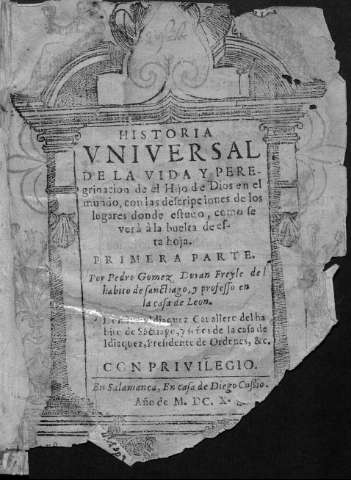 HISTORIA
VNIVERSAL
DE LA VIDA Y PERE-
grinacion de el Hijo de Dios en el
mundo, con las descripciones de los
lugares donde estuuo, como se
verá à la buelta de es-
ta hoja.
PRIMERA PARTE.
Por Pedro Gomez Duran Freyle del
habito de sanctiago, y professo en
la casa de Leon.
Idiaquez Cauallero del ha-
bito de Sãctiago, y señor de la casa de
Idiaquez, Presidente de Ordenes, &c.
CON PRIVILEGIO.
En Salamanca, En casa de Diego Cussio.
Año de M. DC. X